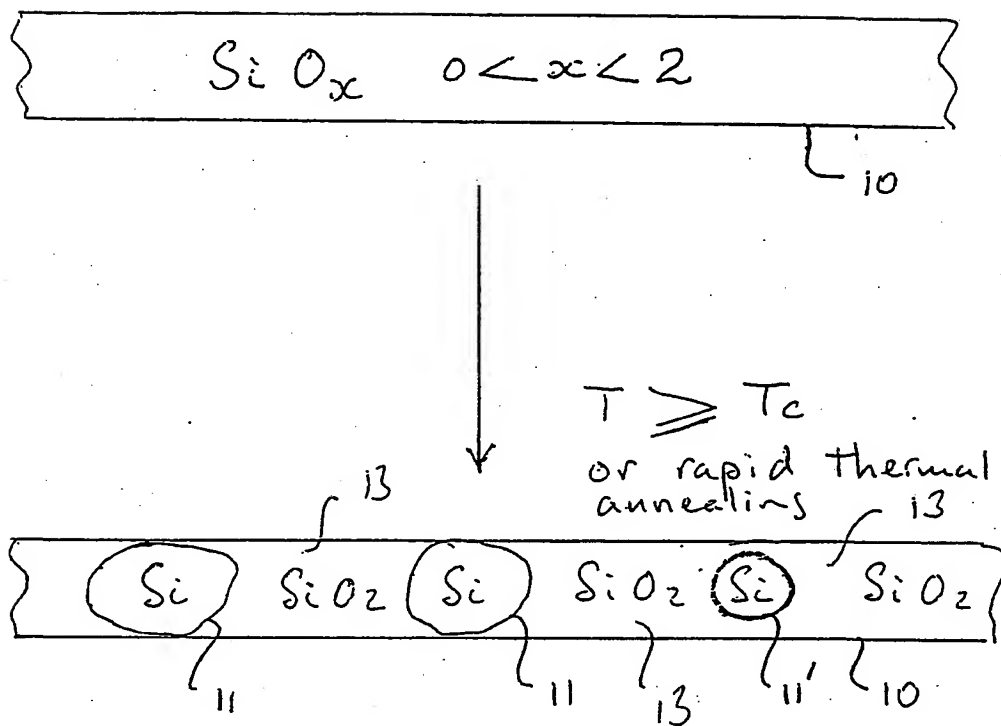 SiOx o<x<2
10
T ≥ Tc
or rapid thermal
annealins 13
13
Si SiO2 Si SiO2 Si SiO2
11 11 13 11' 10